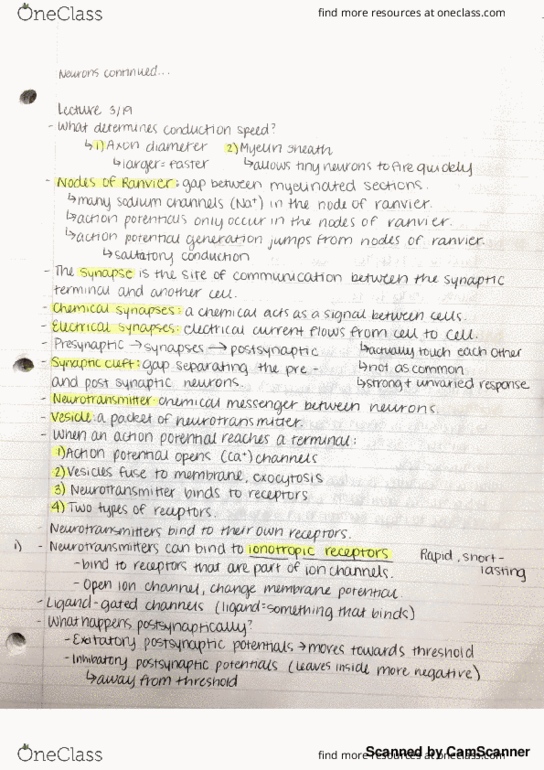 OneClass
find more resources at oneclass.com
Neurons continued...
Lecture 3/19
- What determines conduction speed?
↳1) Axon diameter 2) Myelin sheath
↳larger=faster ↳allows tiny neurons to fire quickly
- Nodes of Ranvier: gap between myelinated sections.
↳many sodium channels (Na⁺) in the node of ranvier.
↳action potentials only occur in the nodes of ranvier.
↳action potential generation jumps from nodes of ranvier.
↳saltatory conduction
- The synapse is the site of communication between the synaptic
terminal and another cell.
- Chemical synapses: a chemical acts as a signal between cells.
- Electrical synapses: electrical current flows from cell to cell.
- Presynaptic → synapses → postsynaptic ↳actually touch each other
- Synaptic cleft: gap separating the pre- ↳not as common
and post synaptic neurons. ↳strong + unvaried response
- Neurotransmitter: chemical messenger between neurons.
- Vesicle: a packet of neurotransmitter.
- When an action potential reaches a terminal:
1) Action potential opens (Ca⁺) channels
2) Vesicles fuse to membrane, exocytosis
3) Neurotransmitter binds to receptors
4) Two types of receptors.
- Neurotransmitters bind to their own receptors.
i) - Neurotransmitters can bind to ionotropic receptors Rapid, short-
- bind to receptors that are part of ion channels. lasting
- Open ion channel, change membrane potential
- Ligand-gated channels (ligand=something that binds)
- What happens postsynaptically?
- Excitatory postsynaptic potentials → moves towards threshold
- Inhibitory postsynaptic potentials (leaves inside more negative)
↳away from threshold
OneClass
find more resources at oneclass.com
Scanned by CamScanner